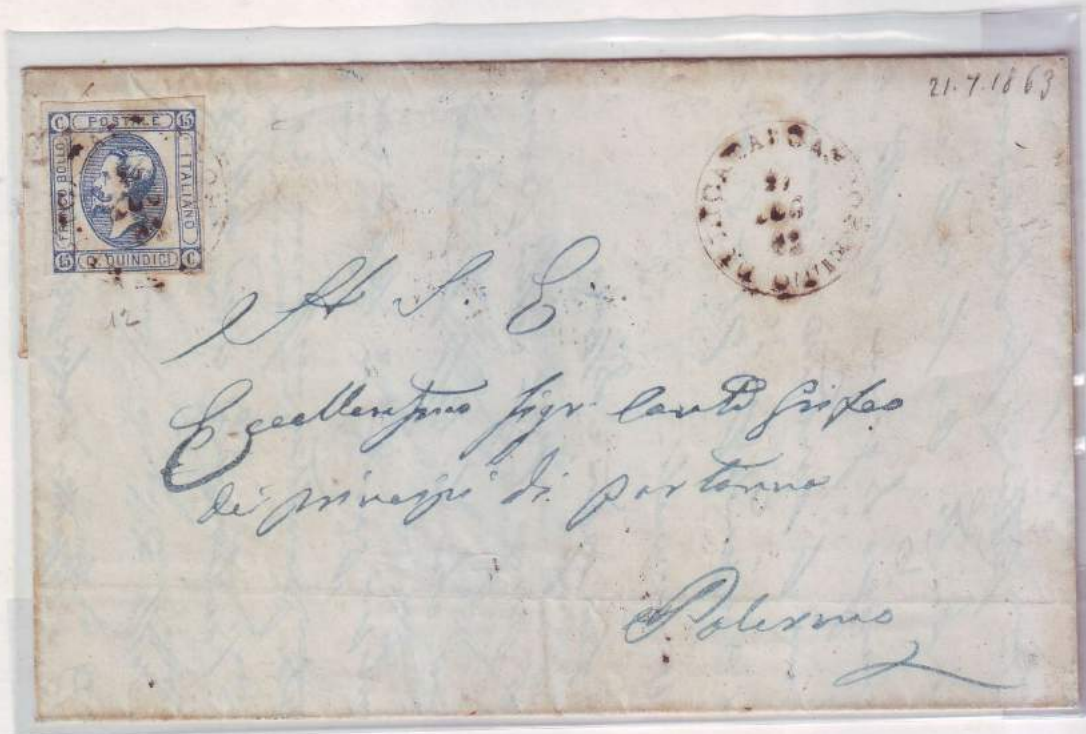 21.7.1863
C POSTALE 15
FRANCO BOLLO
ITALIANO
15 C. QUINDICI C
12
21
LUG
63
A S. E.
Eccellentissimo Sigr Conte Grifeo
dei principi di partanna
Palermo